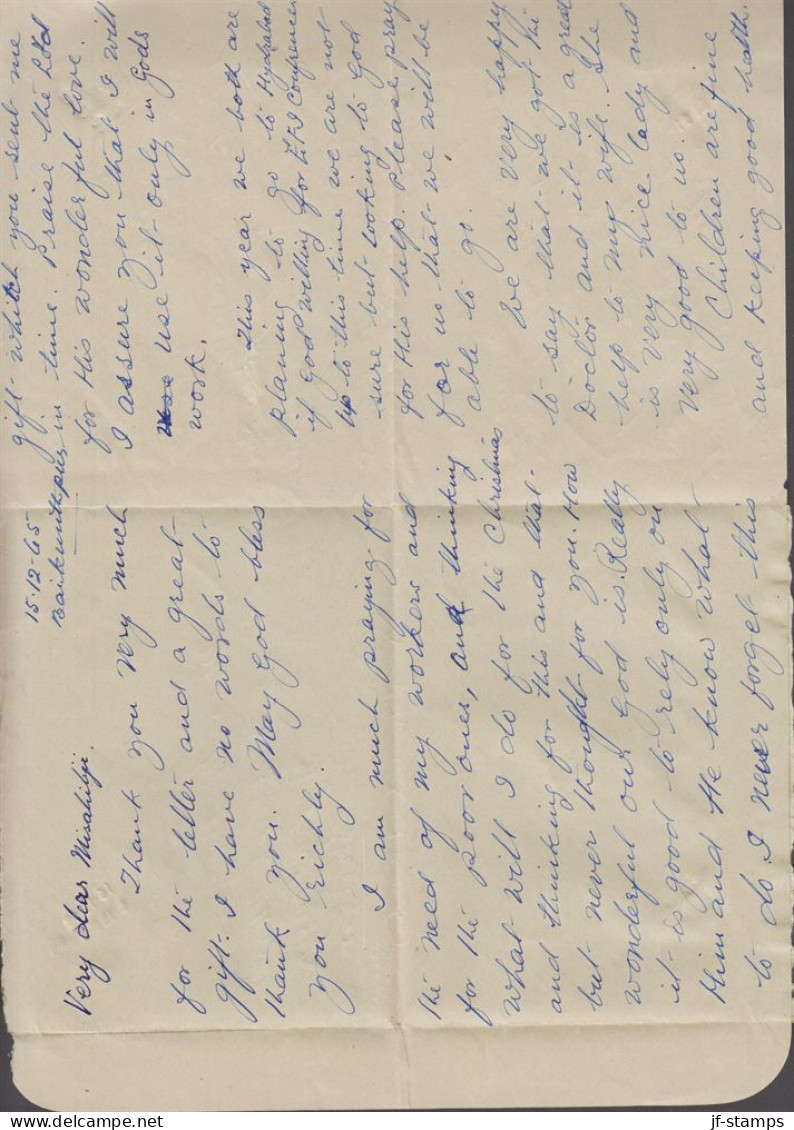 15-12-65
Baikunthpur
Very dear Misahibji.
Thank you very much
for the letter and a great
gift. I have no words to
thank you. May God bless
you richly.
I am much praying for
the need of my workers and
for the poor ones, and thinking
what will I do for the Christmas
and thinking for this and that
but never thought for you. How
wonderful our God is. Really
it is good to rely only on
Him and He know what
to do I never forget this
gift which you sent me
in time. Praise the Lord
for His wonderful love.
I assure you that I will
use it only in Gods
work.
This year we both are
planing to go to Hydrabad
if God willing for conference
up to this time we are not
sure but looking to God
for His help. Please pray
for us that we will be
able to go.
We are very happy
to say that we got the
Doctor and it is a great
help to my wife. She
is very nice lady and
very good to us.
Children are fine
and keeping good health.
www.delcampe.net
jf-stamps